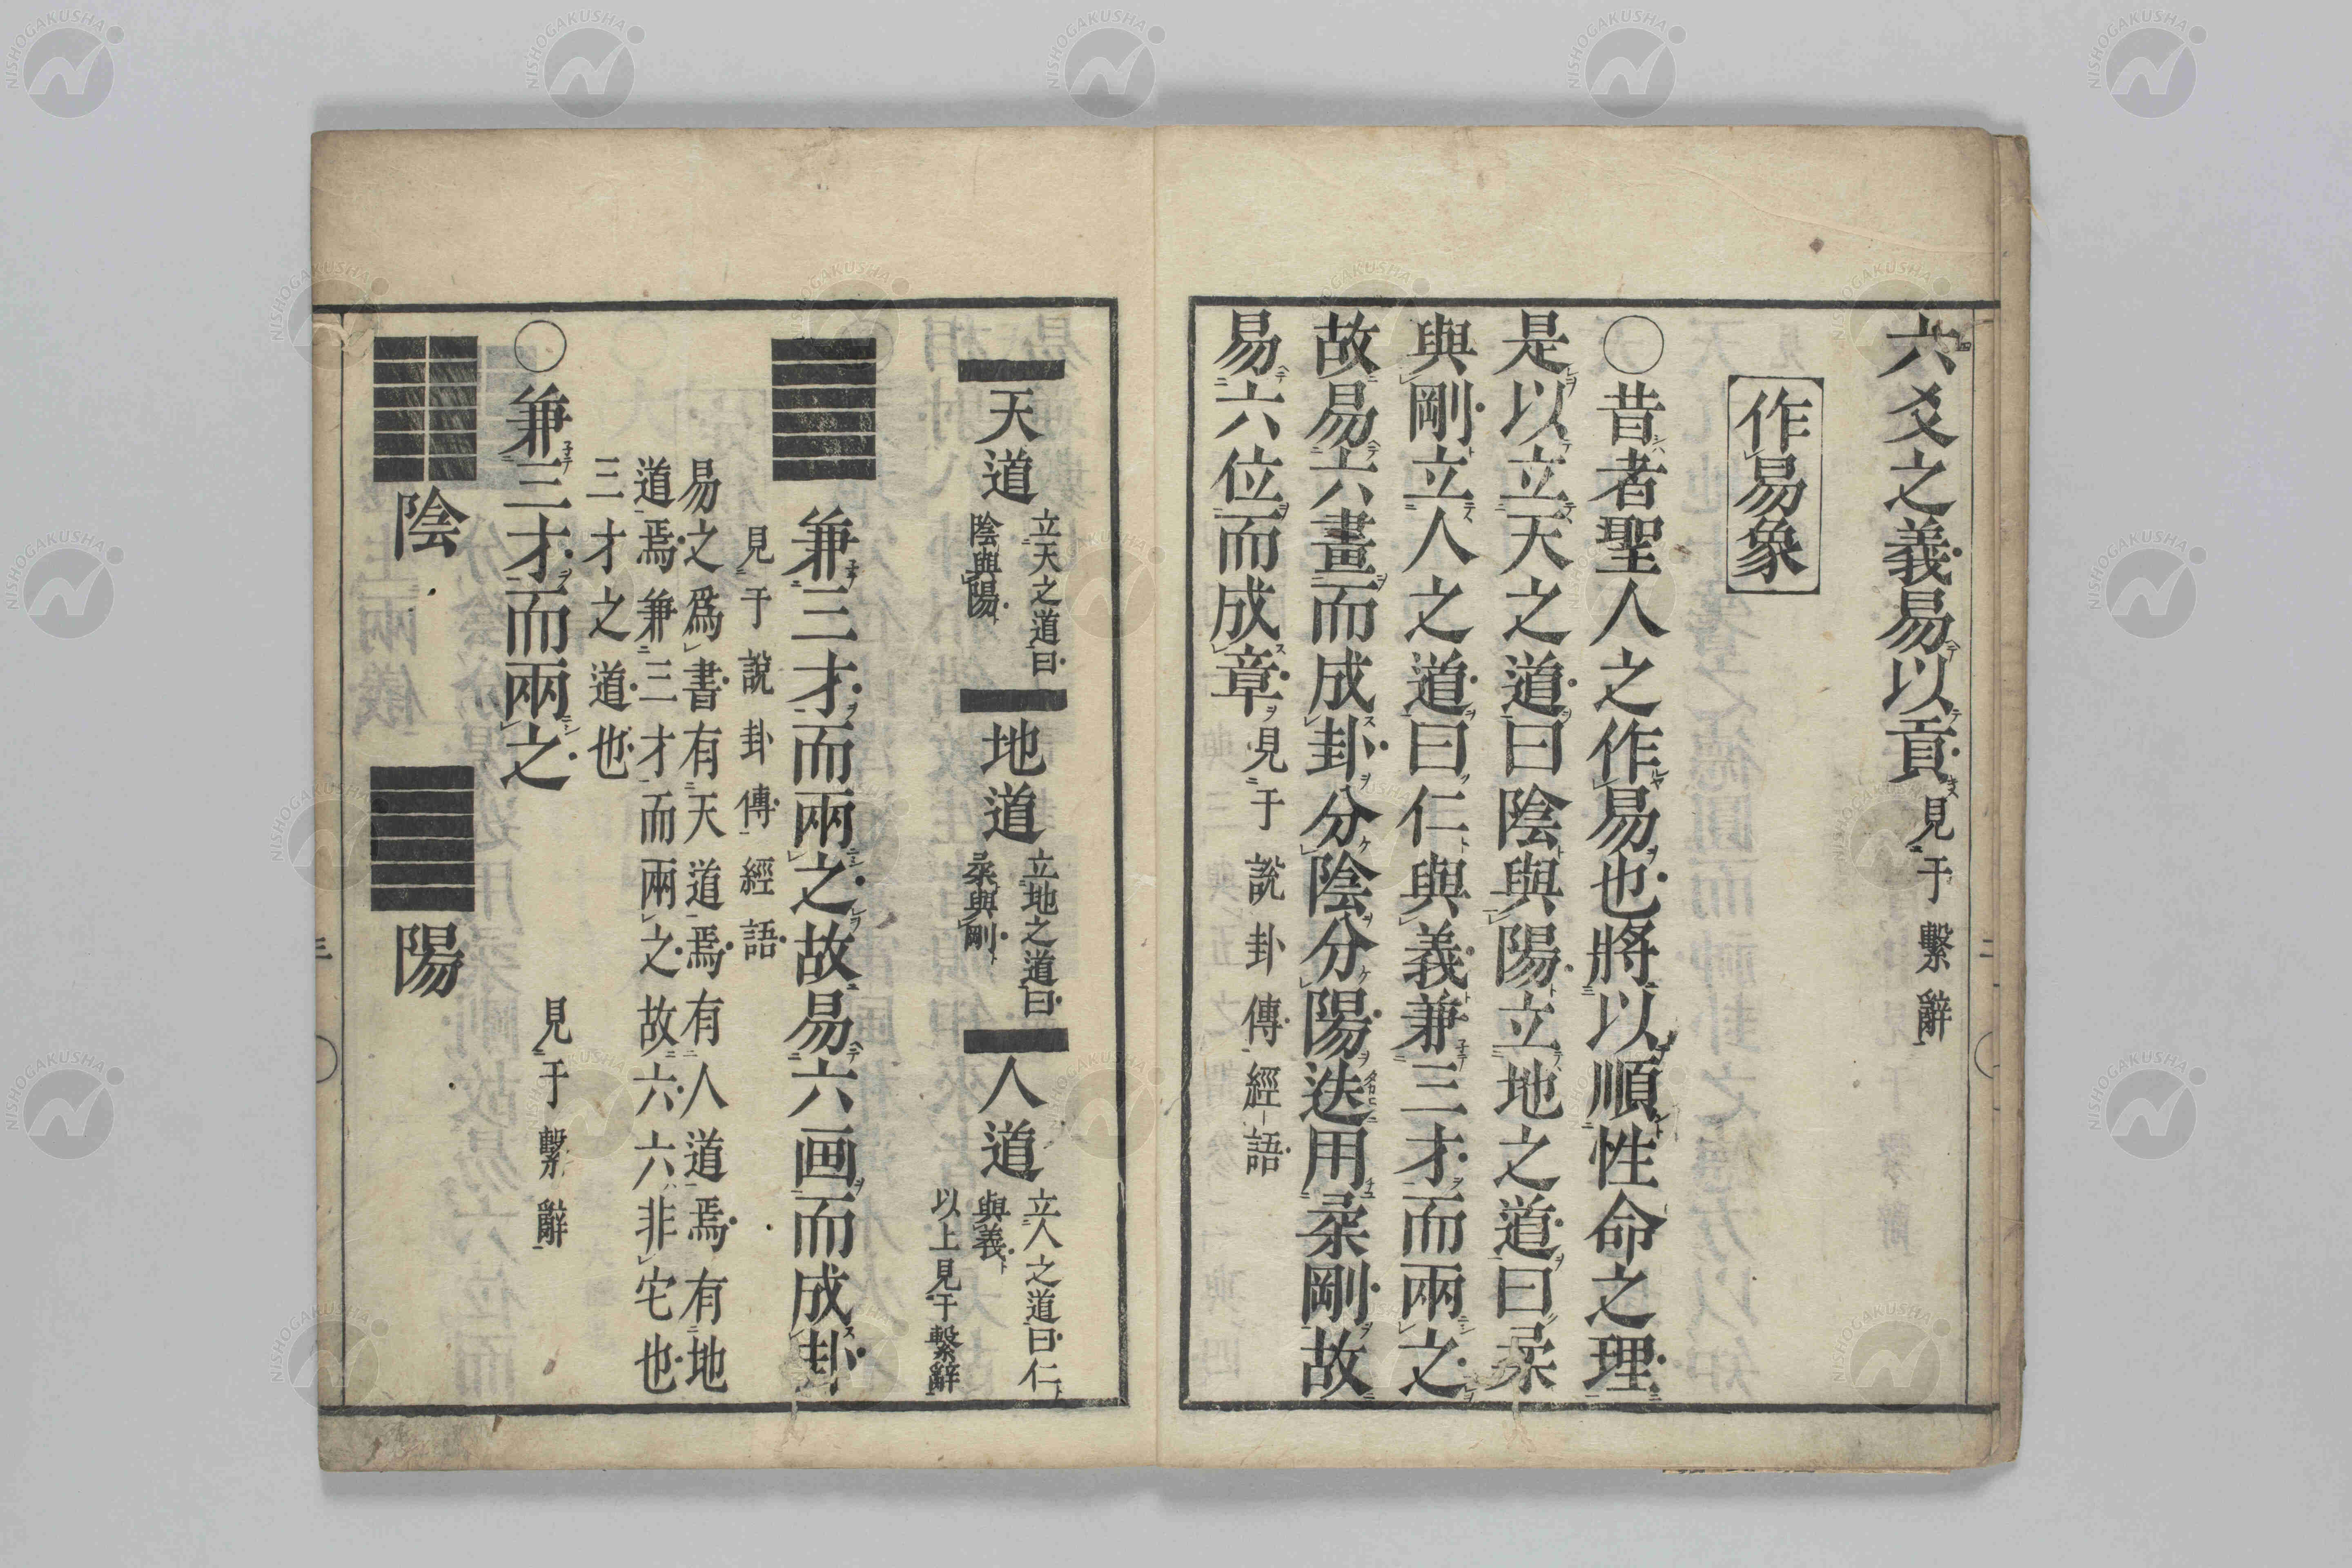 六爻之義易以貢見于繫辭
作易象
○昔者聖人之作易也將以順性命之理
是以立天之道曰陰與陽立地之道曰柔
與剛立人之道曰仁與義兼三才而兩之
故易六畫而成卦分陰分陽迭用柔剛故
易六位而成章見于說卦傳經語
天道
立天之道曰
陰與陽
地道
立地之道曰
柔與剛
人道
立人之道曰仁
與義
以上見于繫辭
兼三才而兩之故易六画而成卦
見于說卦傳經語
易之爲書有天道焉有人道焉有地
道焉兼三才而兩之故六六非它也
三才之道也
○兼三才而兩之
見于繫辭
陰
陽
二
三
NISHOGAKUSHA